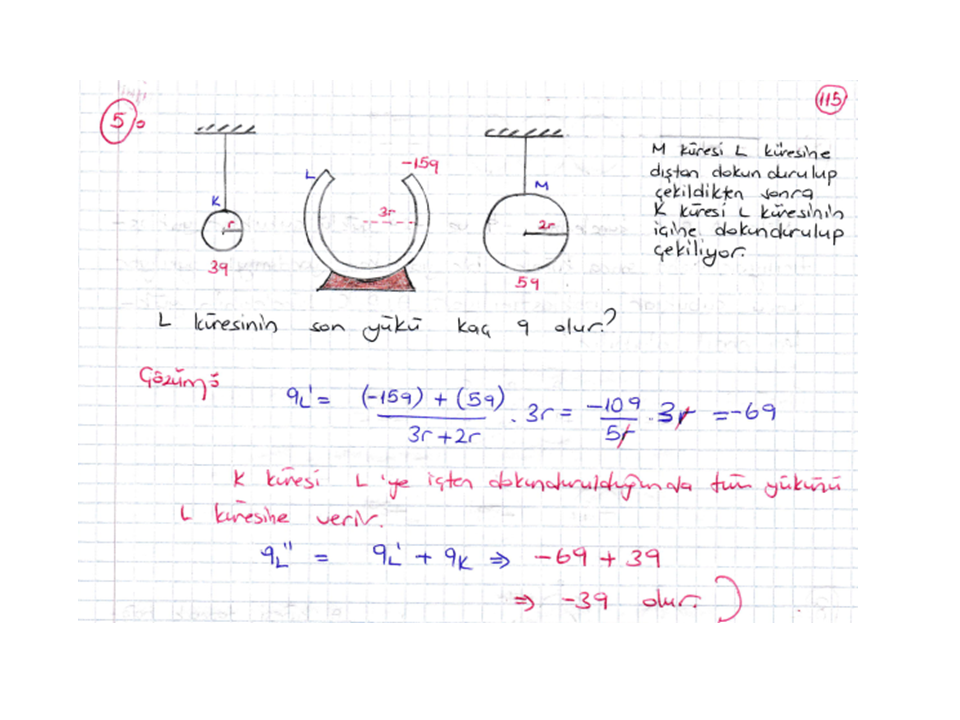 115
5.
K
r
3q
L
-15q
3r
M
2r
5q
M küresi L küresine
dıştan dokundurulup
çekildikten sonra
K küresi L küresinin
içine dokundurulup
çekiliyor.
L küresinin son yükü kaç q olur?
Çözüm:
qL' = (-15q) + (5q) / 3r + 2r . 3r = -10q / 5r . 3r = -6q
K küresi L'ye içten dokundurulduğunda tüm yükünü
L küresine verir.
qL'' = qL' + qK ⇒ -6q + 3q
⇒ -3q olur.